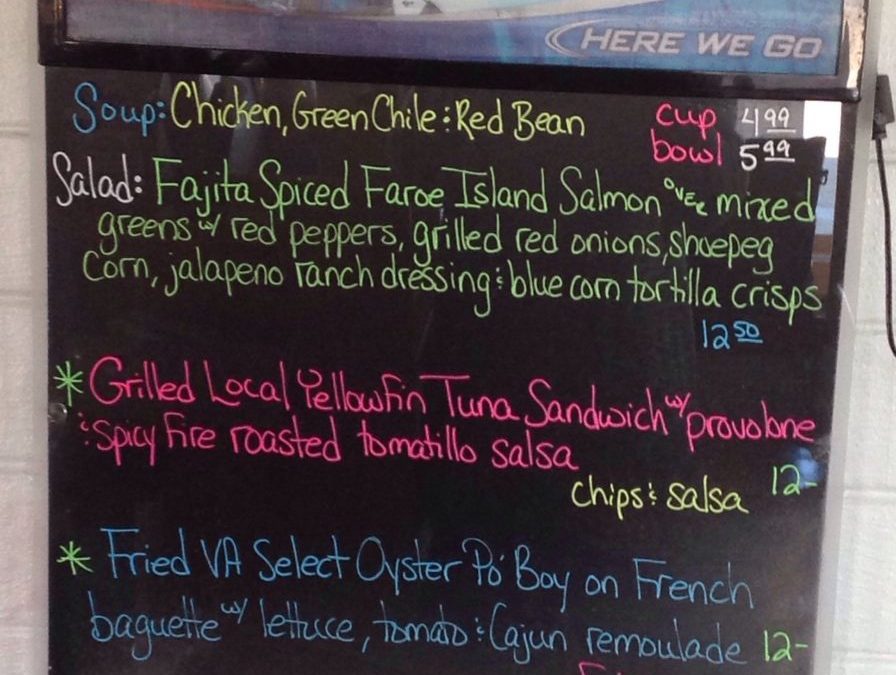 HERE WE GO
Soup: Chicken, Green Chile & Red Bean cup 4.99
bowl 5.99
Salad: Fajita Spiced Faroe Island Salmon over mixed
greens w/ red peppers, grilled red onions, shoepeg
corn, jalapeno ranch dressing & blue corn tortilla crisps
12.50
* Grilled Local Yellowfin Tuna Sandwich w/ provolone
& spicy fire roasted tomatillo salsa
chips & salsa 12-
* Fried VA Select Oyster Po' Boy on French
baguette w/ lettuce, tomato & Cajun remoulade 12-